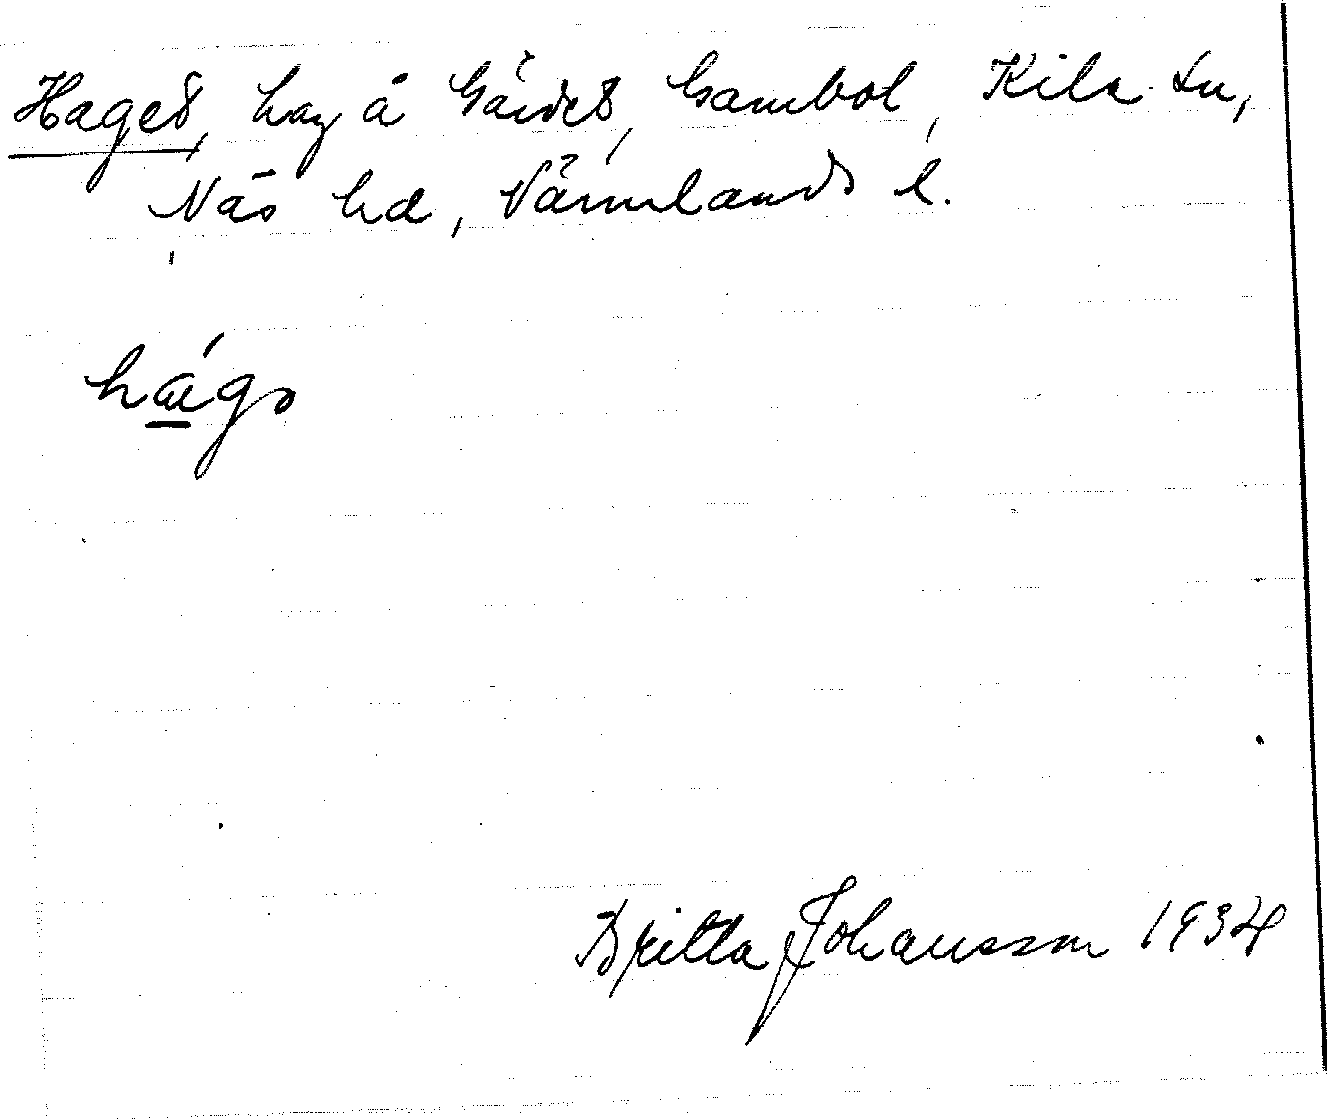 Haget, hag å Gärdet, Gambol, Kila sn,
Näs hd, Värmlands l.
Britta Johansson 1934